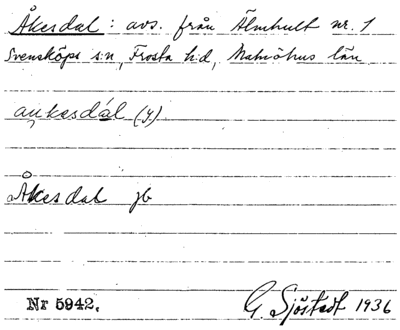 Åkesdal: avs. från Älmhult nr. 1
Svensköps s:n, Frosta h:d, Malmöhus län
aukesdál (y)
Åkesdal jb
Nr 5942.
G Sjöstedt 1936